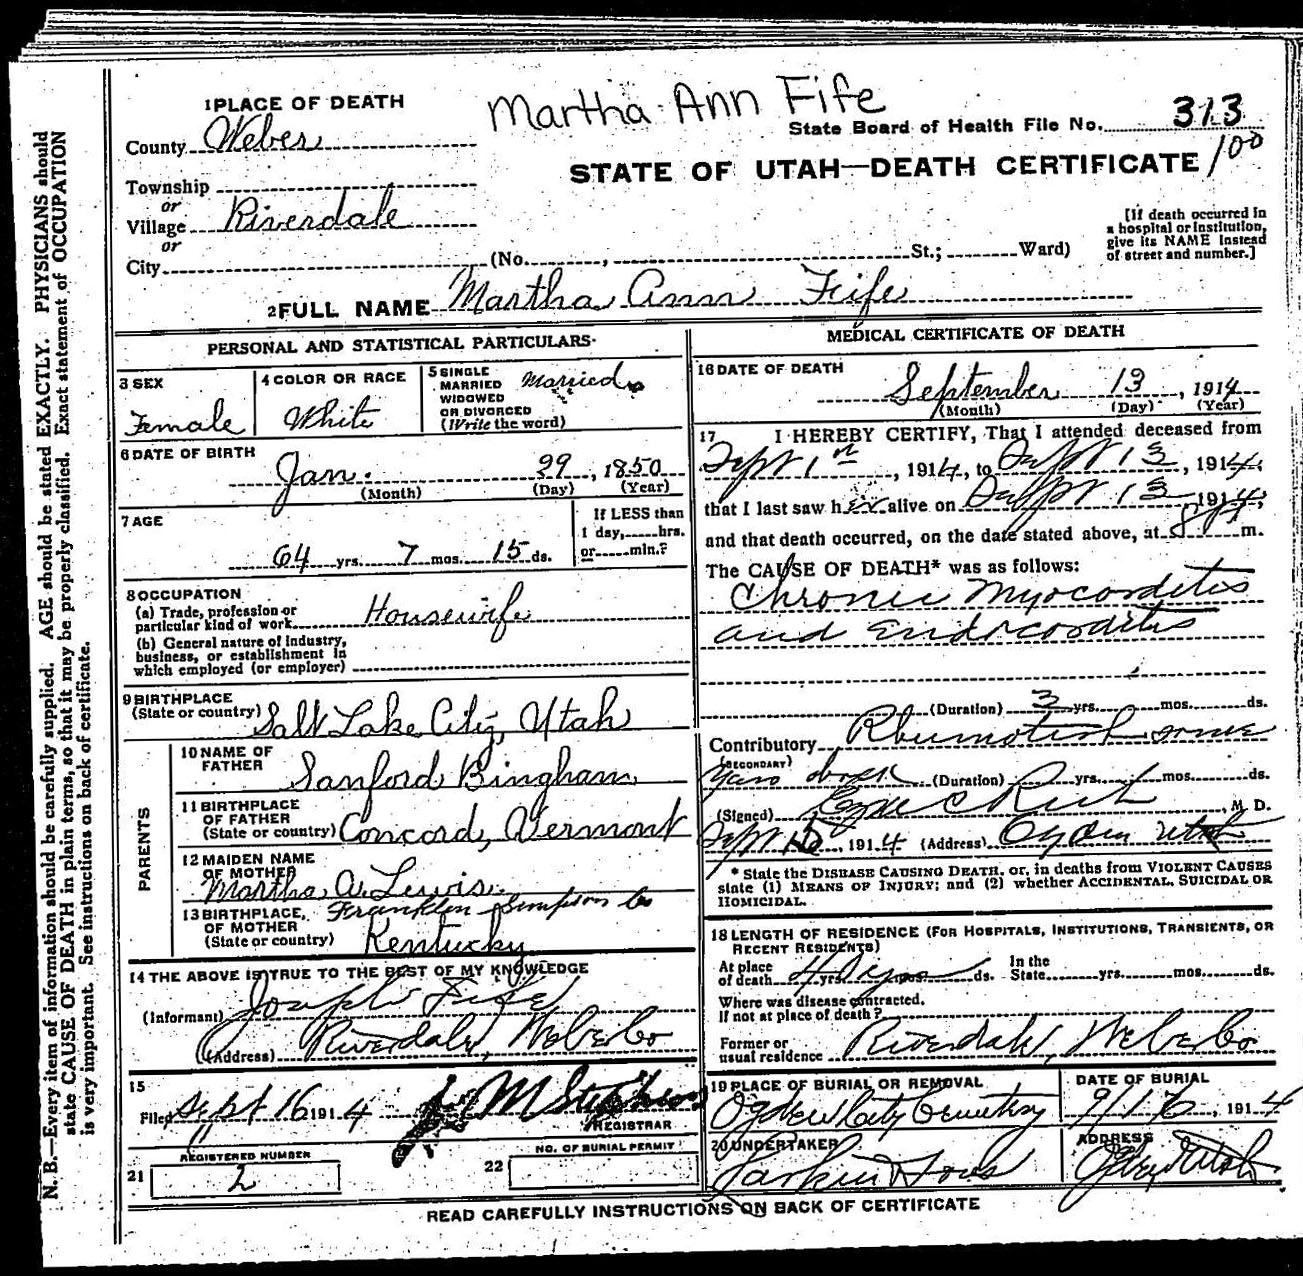 Martha Ann Fife
1 PLACE OF DEATH
State Board of Health File No. 313
County Weber
100
STATE OF UTAH—DEATH CERTIFICATE
Township
or
Village Riverdale
or
City (No. , St.; Ward)
[If death occurred in
a hospital or institution,
give its NAME instead
of street and number.]
2 FULL NAME Martha Ann Fife
PERSONAL AND STATISTICAL PARTICULARS
3 SEX
Female
4 COLOR OR RACE
White
5 SINGLE
MARRIED
WIDOWED
OR DIVORCED
(Write the word)
Married
6 DATE OF BIRTH
Jan. 29, 1850
(Month) (Day) (Year)
7 AGE
64 yrs. 7 mos. 15 ds.
If LESS than
1 day, hrs.
or min.?
8 OCCUPATION
(a) Trade, profession or
particular kind of work Housewife
(b) General nature of industry,
business, or establishment in
which employed (or employer)
9 BIRTHPLACE
(State or country) Salt Lake City, Utah
PARENTS
10 NAME OF
FATHER
Sanford Bingham
11 BIRTHPLACE
OF FATHER
(State or country) Concord, Vermont
12 MAIDEN NAME
OF MOTHER
Martha A. Lewis
13 BIRTHPLACE, Franklin Simpson Co
OF MOTHER
(State or country) Kentucky
14 THE ABOVE IS TRUE TO THE BEST OF MY KNOWLEDGE
(Informant) Joseph Fife
(Address) Riverdale, Weber Co
15
Filed Sept 16 1914
REGISTRAR
REGISTERED NUMBER
21 2
NO. OF BURIAL PERMIT
22
MEDICAL CERTIFICATE OF DEATH
16 DATE OF DEATH
September 13, 1914
(Month) (Day) (Year)
17 I HEREBY CERTIFY, That I attended deceased from
Sept 1st, 1914, to Sept 13, 1914,
that I last saw her alive on Sept 13 1914,
and that death occurred, on the date stated above, at 8 P m.
The CAUSE OF DEATH* was as follows:
Chronic Myocorditis
and Endocorditis
(Duration) 3 yrs. mos. ds.
Contributory Rhumotism some
(SECONDARY)
years (Duration) yrs. mos. ds.
(Signed) , M. D.
Sept 15, 1914 (Address) Ogden Utah
* State the DISEASE CAUSING DEATH, or, in deaths from VIOLENT CAUSES
state (1) MEANS OF INJURY; and (2) whether ACCIDENTAL, SUICIDAL OR
HOMICIDAL.
18 LENGTH OF RESIDENCE (FOR HOSPITALS, INSTITUTIONS, TRANSIENTS, OR
RECENT RESIDENTS)
At place
of death yrs. ds. In the
State yrs. mos. ds.
Where was disease contracted.
If not at place of death?
Former or
usual residence Riverdale, Weber Co
19 PLACE OF BURIAL OR REMOVAL
Ogden City Cemetery
DATE OF BURIAL
9/16, 1914
20 UNDERTAKER
Larkin & Sons
ADDRESS
Ogden Utah
READ CAREFULLY INSTRUCTIONS ON BACK OF CERTIFICATE
N. B.—Every item of information should be carefully supplied. AGE should be stated EXACTLY. PHYSICIANS should
state CAUSE OF DEATH in plain terms, so that it may be properly classified. Exact statement of OCCUPATION
is very important. See instructions on back of certificate.